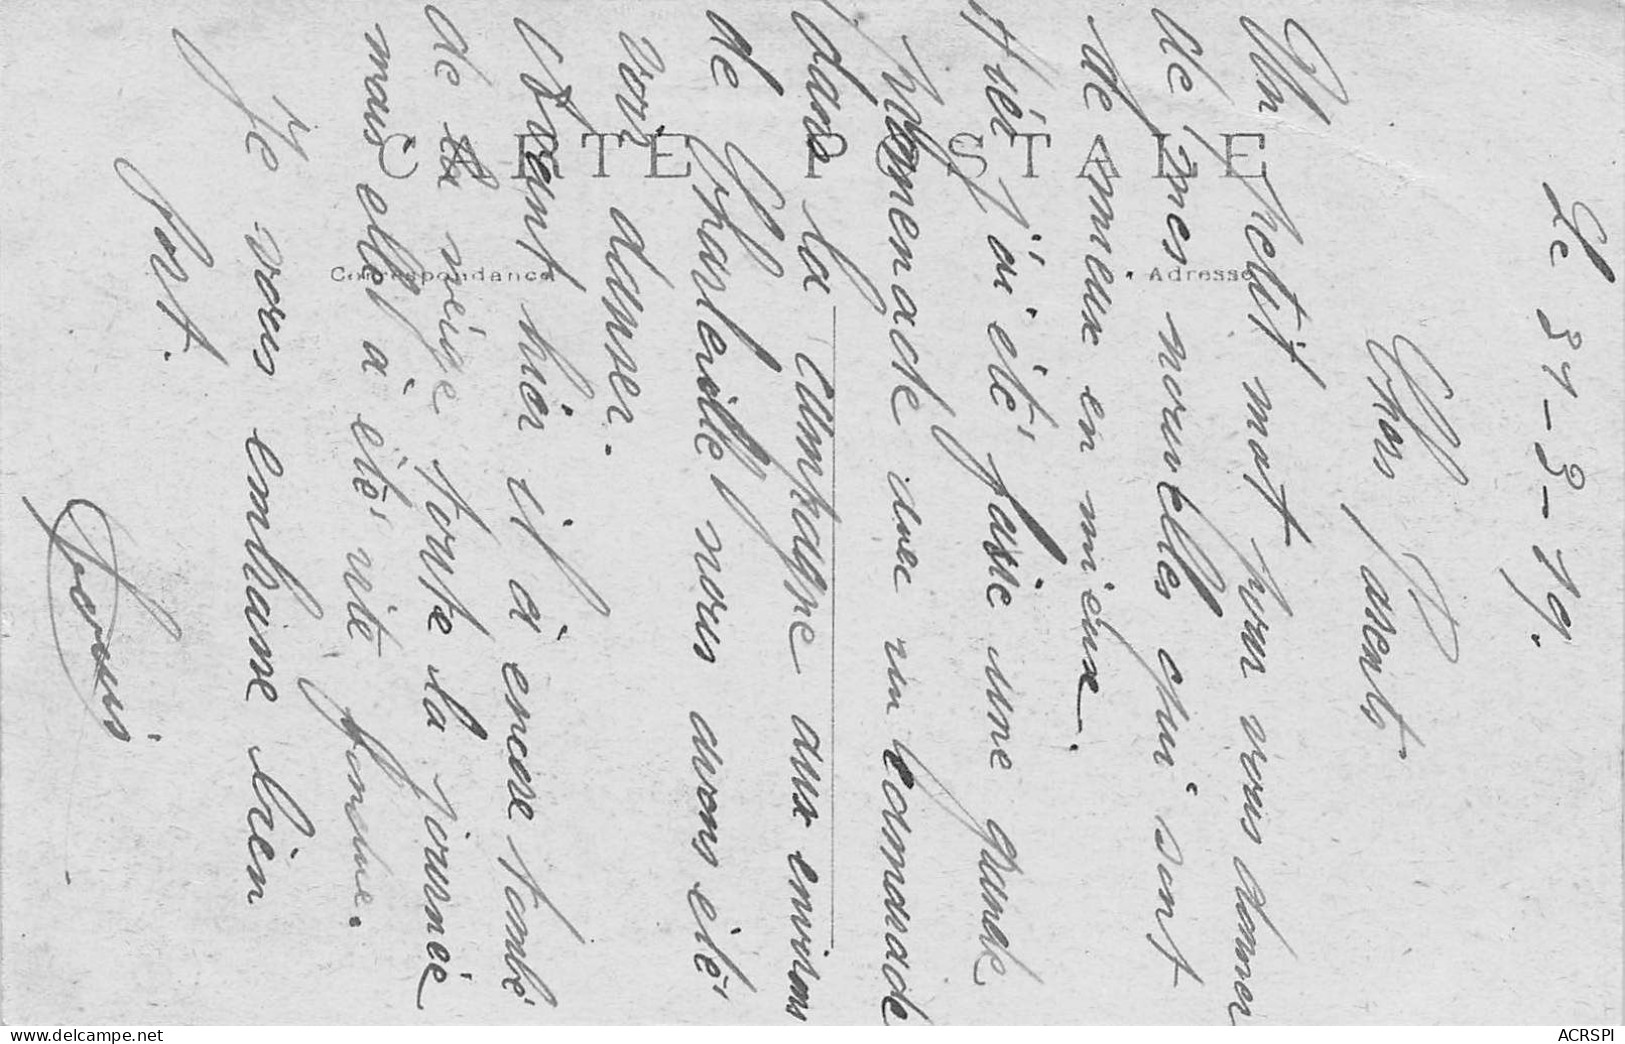 Le 31-3-19.
Chers Parents
Un petit mot pour vous donner
de mes nouvelles qui sont
de mieux en mieux.
Hiér j'ai été fasie une grande
promenade avec un camarade
dans la campagne aux environs
de Charleville nous avons été
voir danser.
Avant hiér il à encore tombé
de la nèige toute la journée
mais elle à été vite fondue.
Je vous embrasse bien
fort.
Louis
CARTE POSTALE
Correspondance
Adresse
www.delcampe.net
ACRSPI